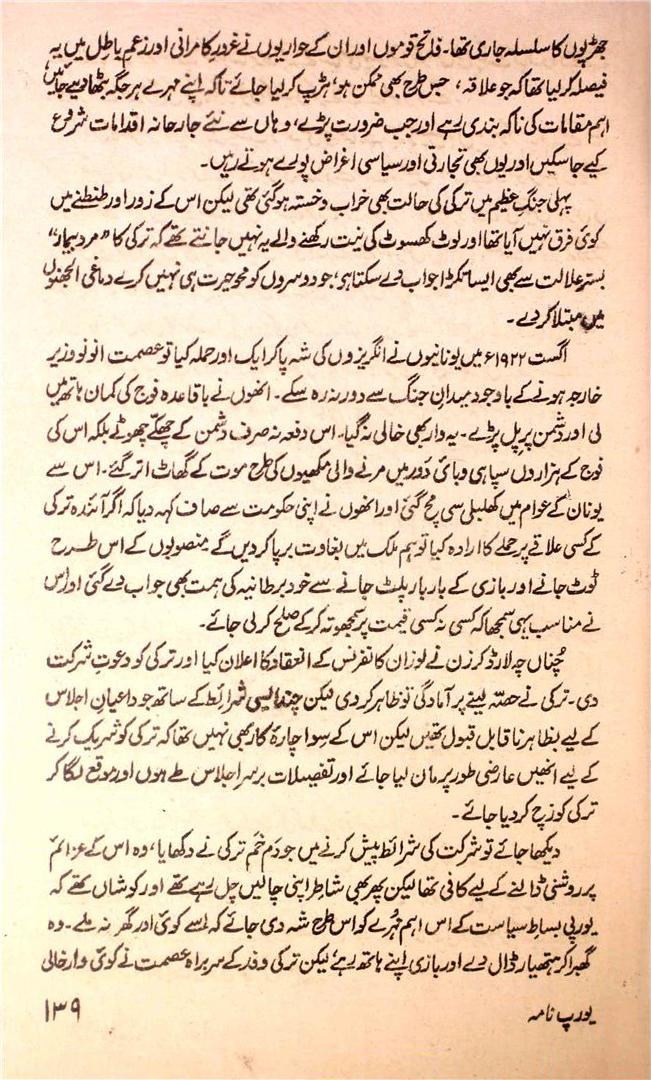 جھڑپوں کا سلسلہ جاری تھا۔ فاتح قوموں اور ان کے حواریوں نے غرورِ کامرانی اور زعمِ باطل میں یہ
فیصلہ کر لیا تھا کہ جو علاقہ، جس طرح بھی ممکن ہو، ہڑپ کر لیا جائے تاکہ اپنے مہرے ہر جگہ بٹھا دیے جائیں
اہم مقامات کی ناکہ بندی رہے اور جب ضرورت پڑے، وہاں سے نئے جارحانہ اقدامات شروع
کیے جا سکیں اور یوں بھی تجارتی اور سیاسی اغراض پورے ہوتے رہیں۔
پہلی جنگِ عظیم میں ترکی کی حالت بھی خراب و خستہ ہو گئی تھی لیکن اس کے زور اور طنطنے میں
کوئی فرق نہیں آیا تھا اور لوٹ کھسوٹ کی نیت رکھنے والے یہ نہیں جانتے تھے کہ ترکی کا "مردِ بیمار"
بسترِ علالت سے بھی ایسا تگڑا جواب دے سکتا ہو، جو دوسروں کو محوِ حیرت ہی نہیں کرے دماغی الجھنوں
میں مبتلا کر دے۔
اگست ۱۹۲۲ء میں یونانیوں نے انگریزوں کی شہ پا کر ایک اور حملہ کیا تو عصمت انونو وزیر
خارجہ ہونے کے باوجود میدانِ جنگ سے دور نہ رہ سکے۔ انھوں نے باقاعدہ فوج کی کمان ہاتھ میں
لی اور دشمن پر پل پڑے۔ یہ وار بھی خالی نہ گیا۔ اس دفعہ نہ صرف دشمن کے چھکے چھوٹے بلکہ اس کی
فوج کے ہزاروں سپاہی وبائی دَور میں مرنے والی مکھیوں کی طرح موت کے گھاٹ اتر گئے۔ اس سے
یونان کے عوام میں کھلبلی سی مچ گئی اور انھوں نے اپنی حکومت سے صاف کہہ دیا کہ اگر آئندہ ترکی
کے کسی علاقے پر حملے کا ارادہ کیا تو ہم ملک میں بغاوت برپا کر دیں گے منصوبوں کے اس طرح
ٹوٹ جانے اور بازی کے بار بار پلٹ جانے سے خود برطانیہ کی ہمت بھی جواب دے گئی اور اُس
نے مناسب یہی سمجھا کہ کسی نہ کسی قیمت پر سمجھوتہ کر کے صلح کر لی جائے۔
چُناں چہ لارڈ کرزن نے لوزان کانفرنس کے انعقاد کا اعلان کیا اور ترکی کو دعوتِ شرکت
دی۔ ترکی نے حصّہ لینے پر آمادگی تو ظاہر کر دی لیکن چند ایسی شرائط کے ساتھ جو داعیانِ اجلاس
کے لیے بظاہر ناقابلِ قبول تھیں لیکن اس کے سوا چارۂ کار بھی نہیں تھا کہ ترکی کو شریک کرنے
کے لیے انھیں عارضی طور پر مان لیا جائے اور تفصیلات برسرِ اجلاس طے ہوں اور موقع لگا کر
ترکی کو زچ کر دیا جائے۔
دیکھا جائے تو شرکت کی شرائط پیش کرنے میں جو دَم خَم ترکی نے دکھایا، وہ اس کے عزائم
پر روشنی ڈالنے کے لیے کافی تھا لیکن پھر بھی شاطر اپنی چالیں چل رہے تھے اور کوشاں تھے کہ
یورپی بساطِ سیاست کے اس اہم مُہرے کو اس طرح شہ دی جائے کہ اسے کوئی اور گھر نہ ملے۔ وہ
گھبرا کر ہتھیار ڈال دے اور بازی اپنے ہاتھ رہے لیکن ترکی وفد کے سربراہ عصمت نے کوئی وار خالی
یورپ نامہ
۱۳۹